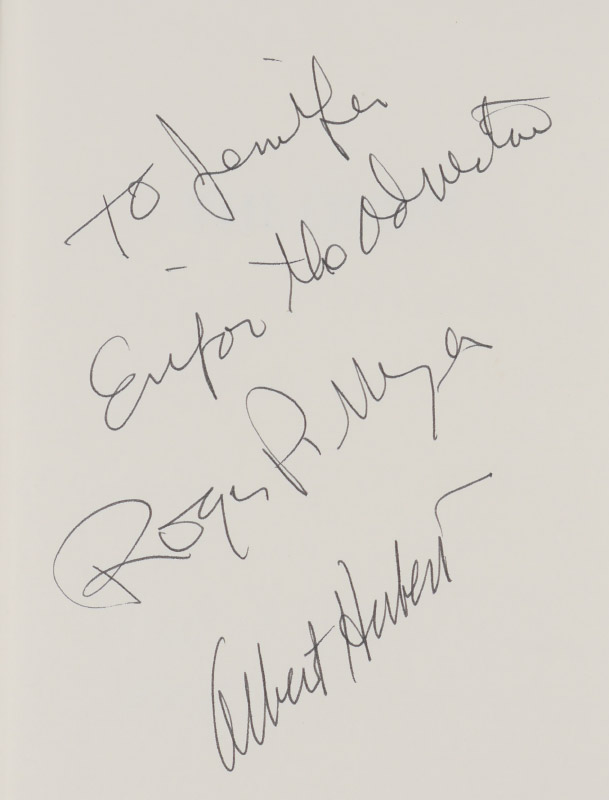 To Jennifer
Enjoy the Adventure
Roger P. Meyer
Albert Herbert